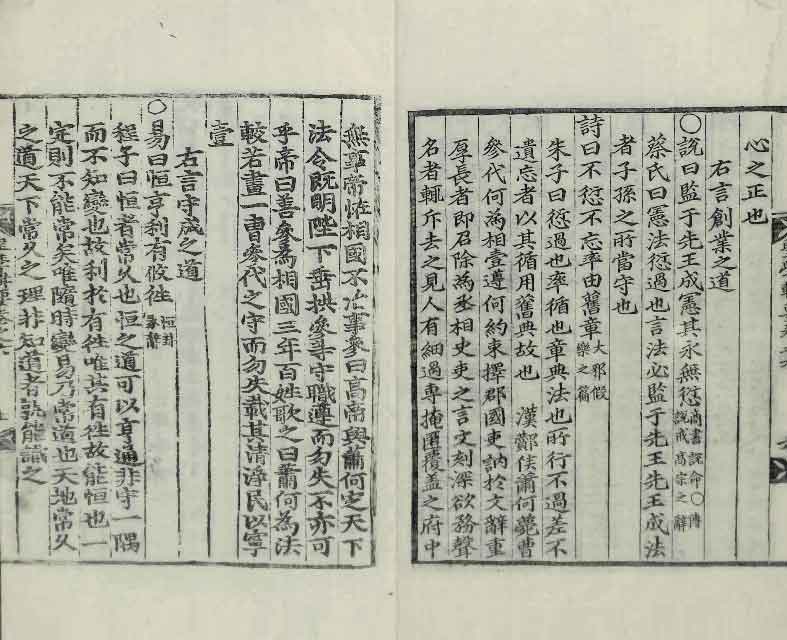 心之正也
右言創業之道
○說曰監于先王成憲其永無愆商書說命○傅說戒高宗之辭
蔡氏曰憲法愆過也言法必監于先王先王成法
者子孫之所當守也
詩曰不愆不忘率由舊章大雅假樂之篇
朱子曰愆過也率循也章典法也所行不過差不
遺忘者以其循用舊典故也 漢酇侯蕭何薨曹
參代何為相壹遵何約束擇郡國吏訥於文辭重
厚長者即召除為丞相史吏之言文刻深欲務聲
名者輒斥去之見人有細過專掩匿覆盖之府中
無事帝恠相國不治事參曰高帝與蕭何定天下
法令旣明陛下垂拱參等守職遵而勿失不亦可
乎帝曰善參爲相國三年百姓歌之曰蕭何為法
較若畫一曹參代之守而勿失載其清淨民以寧
壹
右言守成之道
○易曰恒亨利有攸往恒卦彖辭
程子曰恒者常久也恒之道可以亨通非守一隅
而不知變也故利於有往唯其有往故能恒也一
定則不能常矣唯隨時變易乃常道也天地常久
之道天下常久之理非知道者孰能識之